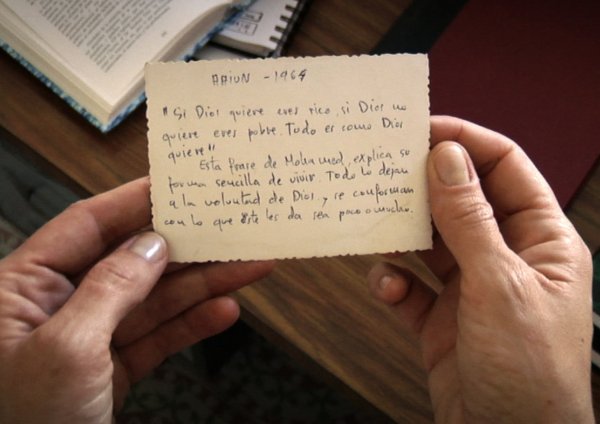 AAIUN - 1964
"Si Dios quiere eres rico, si Dios no
quiere eres pobre. Todo es como Dios
quiere"
Esta frase de Mohamed, explica su
forma sencilla de vivir. Todo lo dejan
a la voluntad de Dios, y se conforman
con lo que éste les da sea poco o mucho.